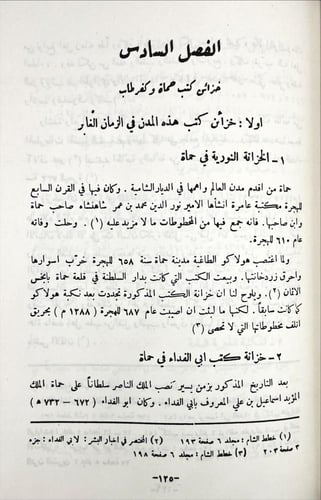 الفصل السادس
خزائن كتب حماة وكفرطاب
اولا : خزائن كتب هذه المدن في الزمان الغابر
١ - الخزانة النورية في حماة
حماة من اقدم مدن العالم واهمها في الديار الشامية . وكان فيها في القرن السابع
للهجرة مكتبة عامرة انشأها الامير نور الدين محمد بن عمر شاهنشاه صاحب حماة
وابن صاحبها. فانه جمع فيها من المخطوطات ما لا مزيد عليه (١) . وحلت وفاته
عام ٦١٠ للهجرة.
ولما اغتصب هولاكو الطاغية مدينة حماة سنة ٦٥٨ للهجرة خرّب اسوارها
واحرق زردخانتها. وبيعت الكتب التي كانت بدار السلطنة في قلعة حماة بابخس
الاثمان (٢) . ويلوح لنا ان خزانة الكتب المذكورة تجددت بعد نكبة هولاكو
كما كانت سابقاً. لكنها ما لبثت ان اصيبت عام ٦٨٧ للهجرة (١٢٨٨ م) بحريق
اتلف مخطوطاتها التي لا تحصى (٣)
٢ - خزانة كتب ابي الفداء في حماة
بعد التاريخ المذكور بزمن يسير نصب الملك الناصر سلطاناً على حماة الملك
المؤيد اسماعيل بن علي المعروف بابي الفداء . وكان ابو الفداء ( ٦٧٢ - ٧٣٢ هـ )
(١) خطط الشام : مجلد ٦ صفحة ١٩٣ (٢) المختصر في اخبار البشر : لابي الفداء : جزء
٣ صفحة ٢٠٣ (٣) خطط الشام : مجلد ٦ صفحة ١٩٨
-١٢٥-